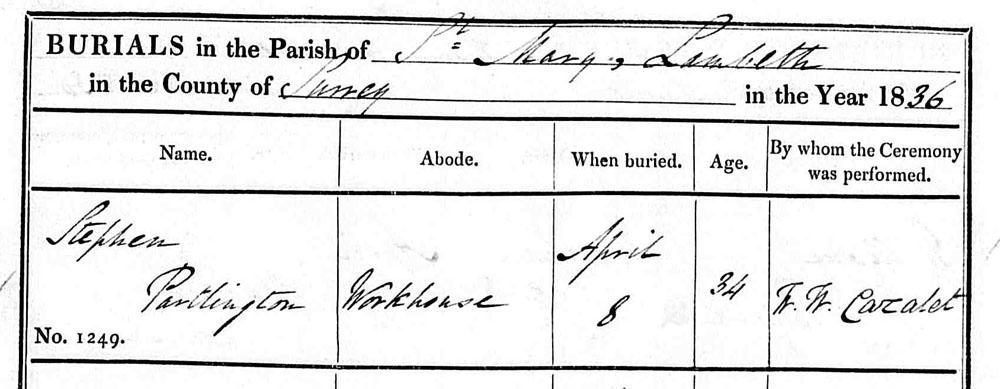 BURIALS in the Parish of St Mary, Lambeth
in the County of Surrey in the Year 1836
Name. Abode. When buried. Age. By whom the Ceremony was performed.
Stephen April
Partlington Workhouse 8 34 W. W. Cazalet
No. 1249.